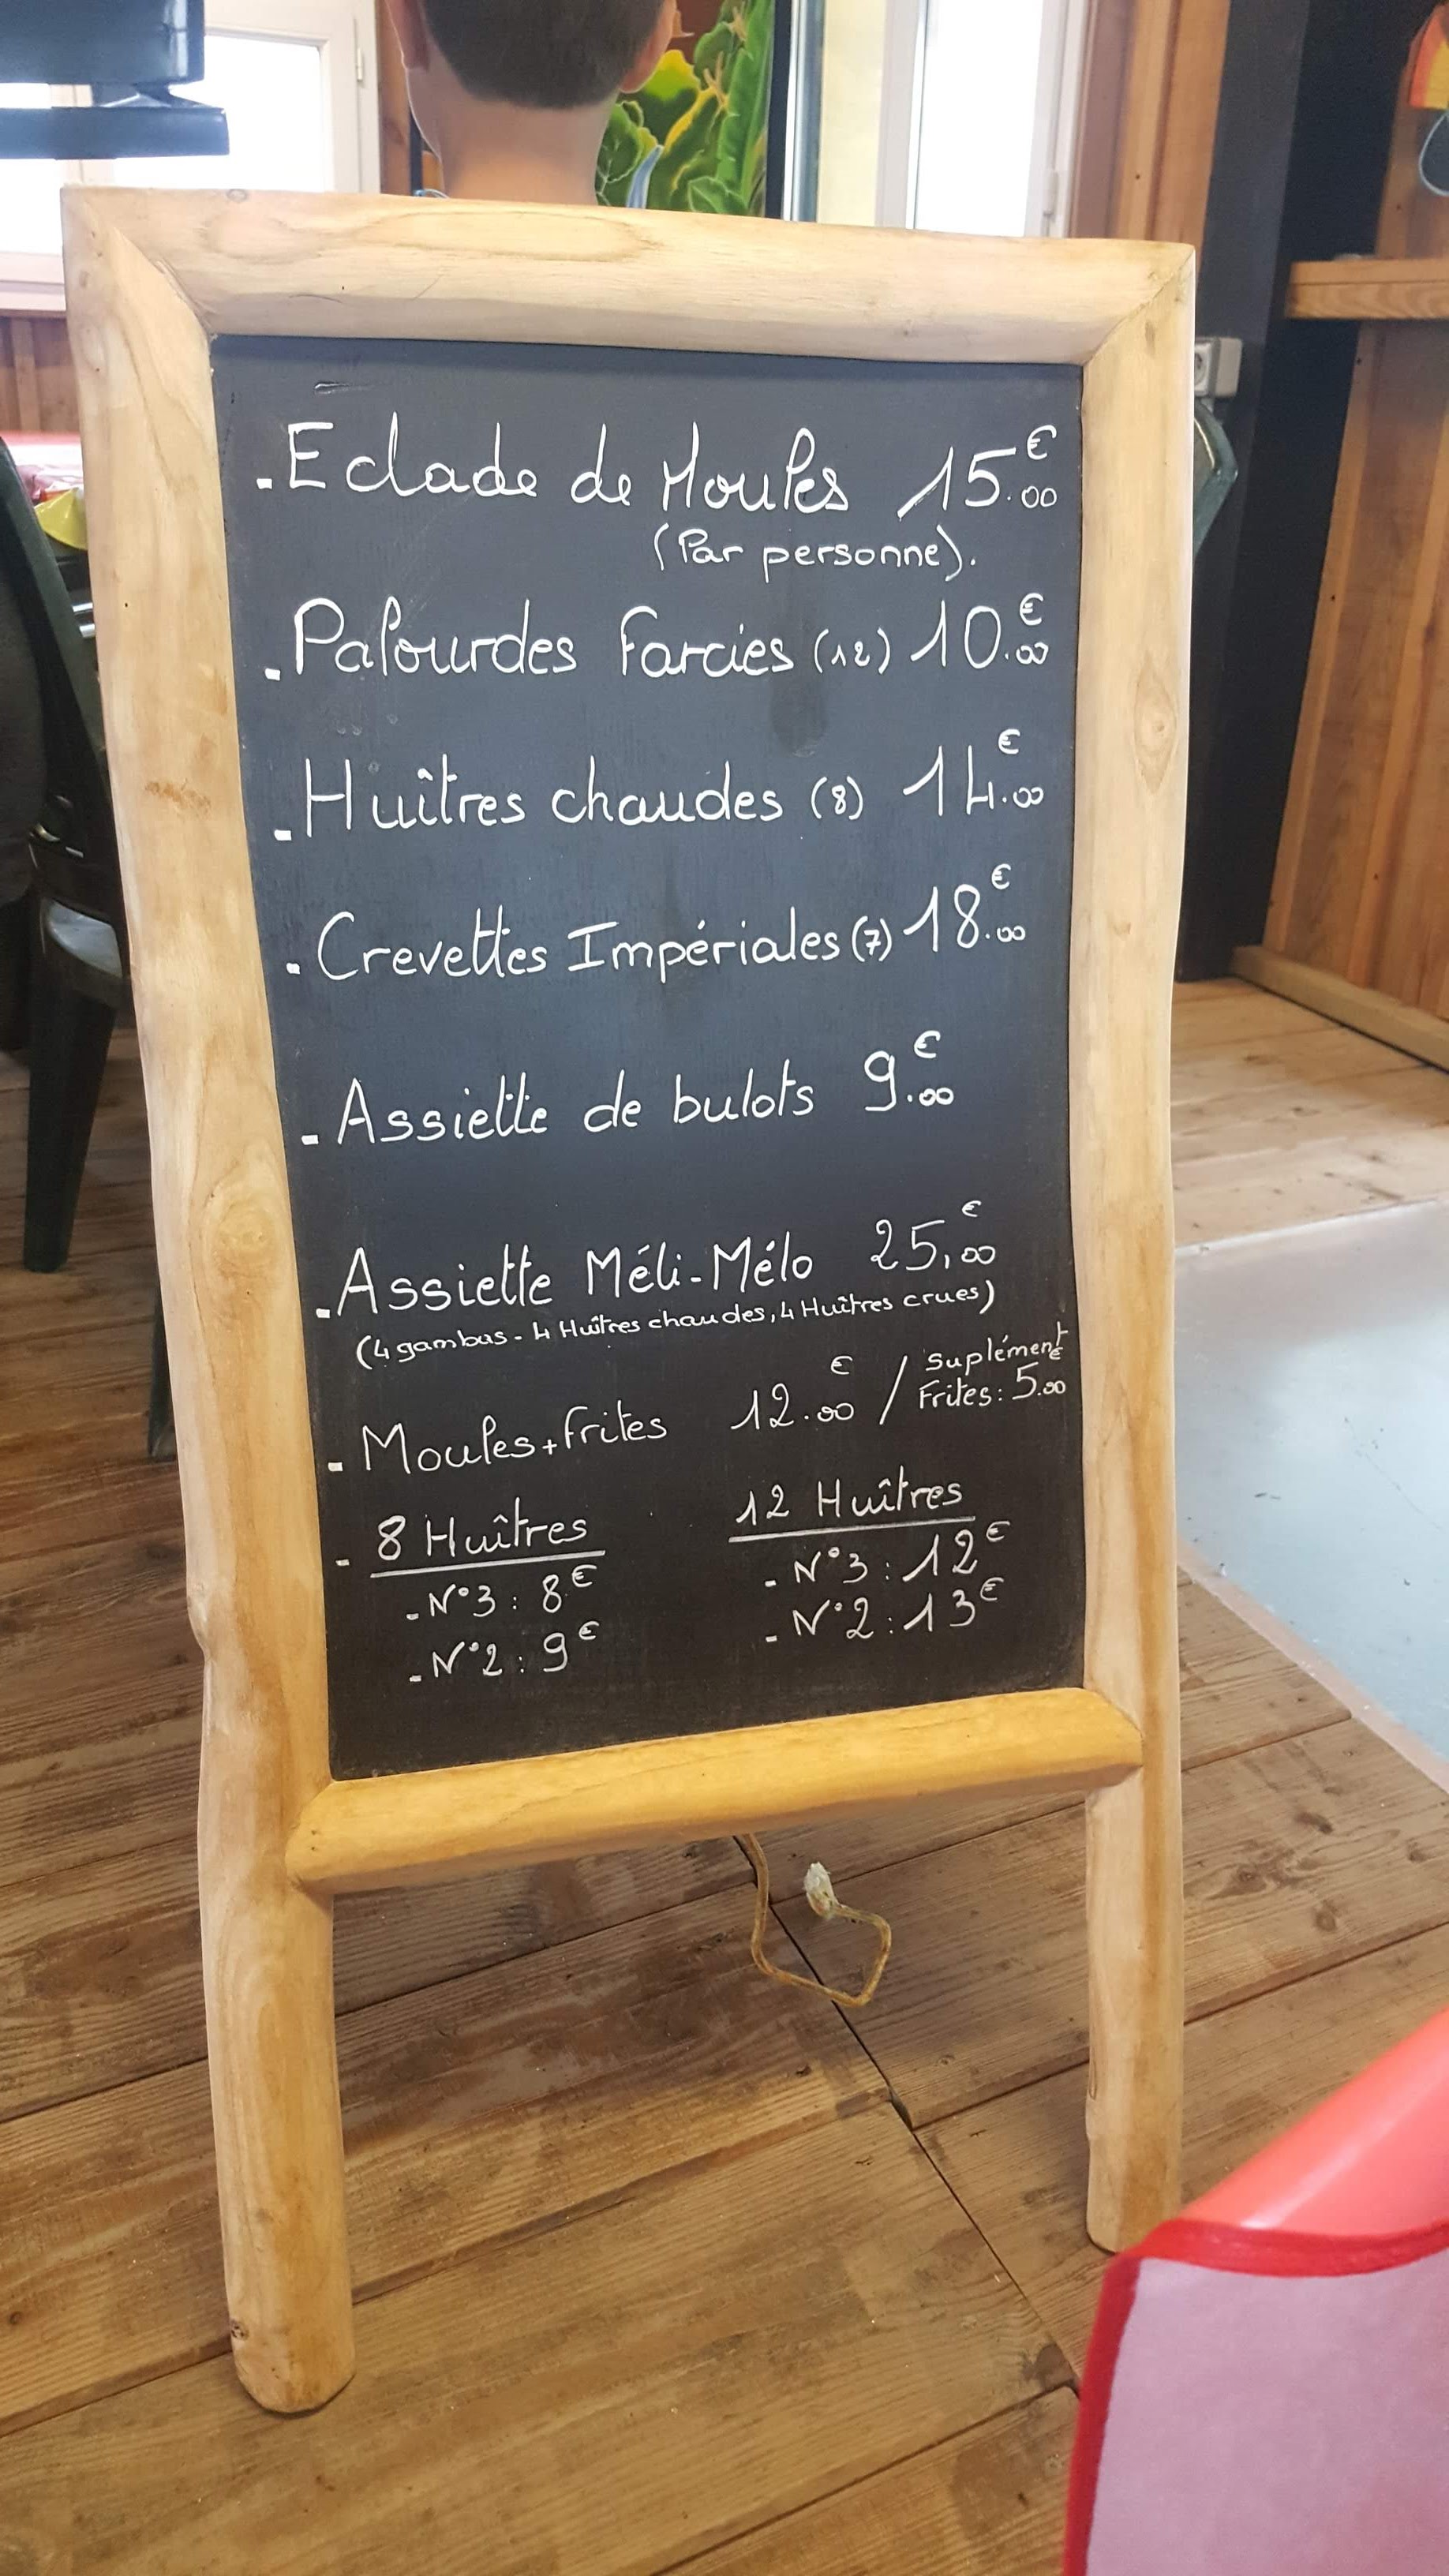 - Eclade de Moules 15.00€
(Par personne).
- Palourdes Farcies (12) 10.00€
- Huîtres chaudes (8) 14.00€
- Crevettes Impériales (7) 18.00€
- Assiette de bulots 9.00€
- Assiette Méli-Mélo 25,00€
(4 gambas - 4 Huîtres chaudes, 4 Huîtres crues)
- Moules + frites 12.00€ / Suplément Frites: 5.00€
- 8 Huîtres
- N°3 : 8€
- N°2 : 9€
12 Huîtres
- N°3 : 12€
- N°2 : 13€